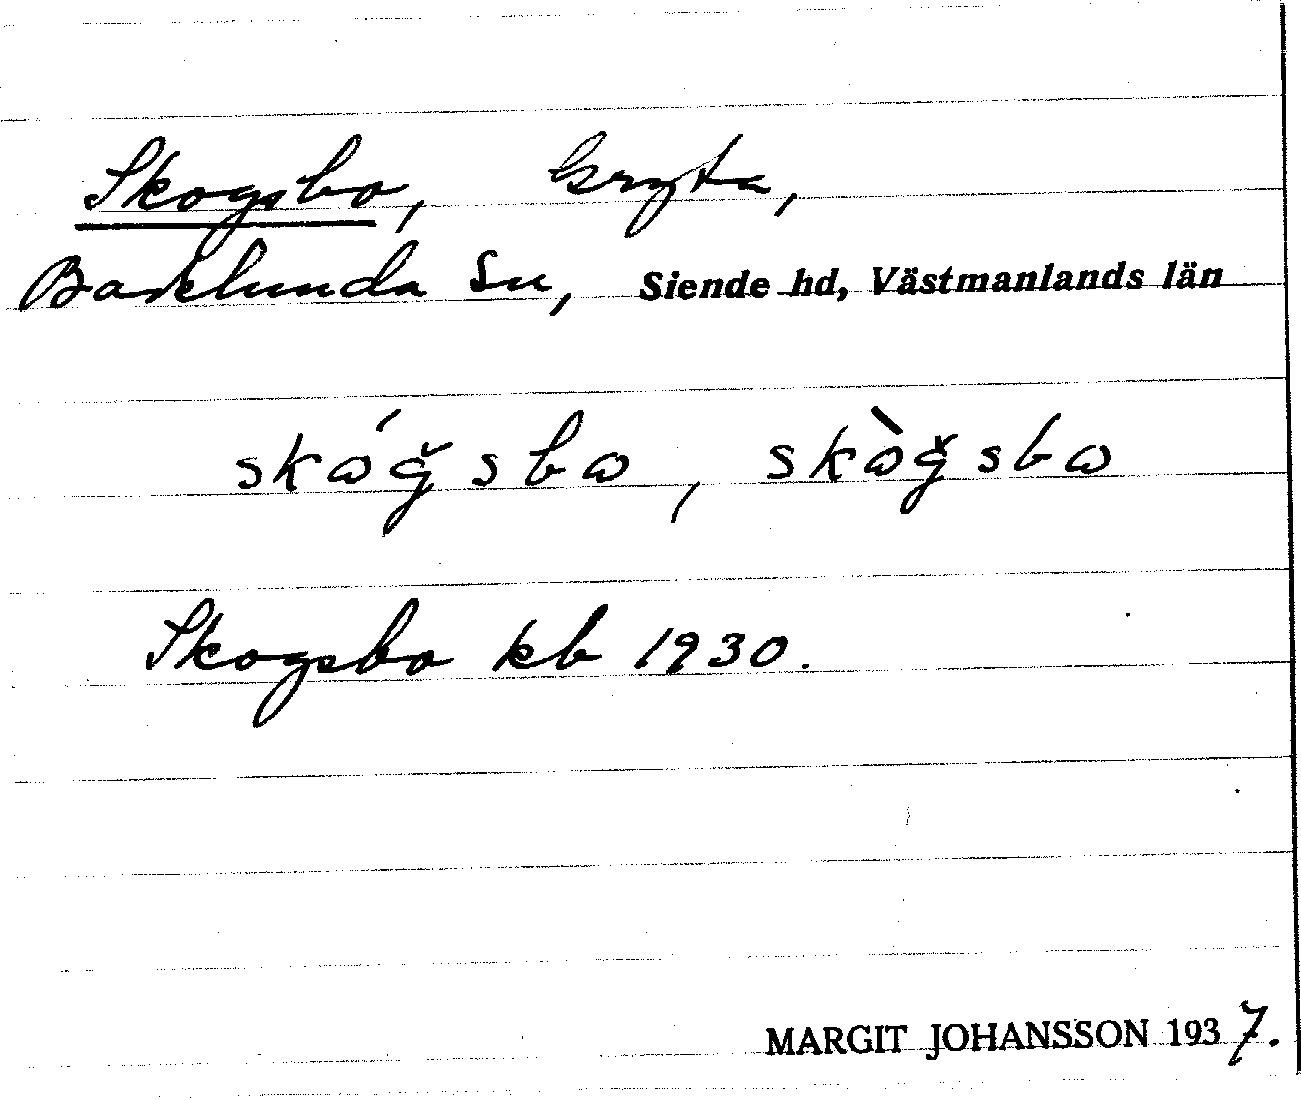 Skogsbo, Gryta,
Badelunda sn, Siende hd, Västmanlands län
skω´ğsbω, skὼğsbω
Skogsbo kb 1930.
MARGIT JOHANSSON 1937.